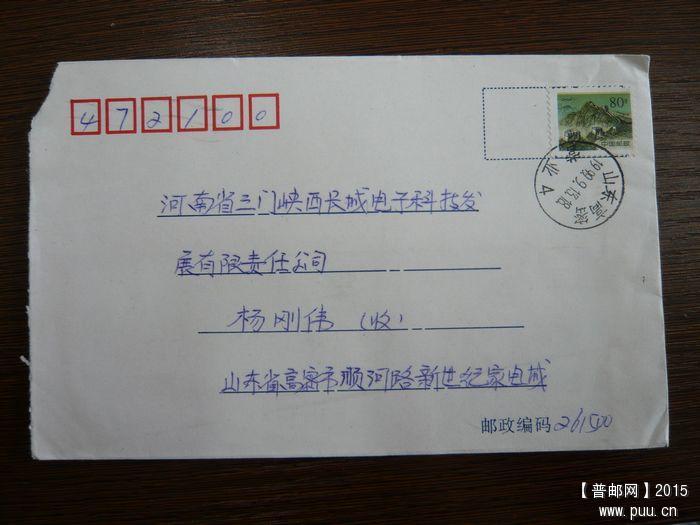 472100
80分
中国邮政
山东高密
1999.9.13.18
河南省三门峡西长城电子科技发
展有限责任公司
杨刚伟（收）
山东省高密市顺河路新世纪家电城
邮政编码 261500
【普邮网】2015
www.puu.cn